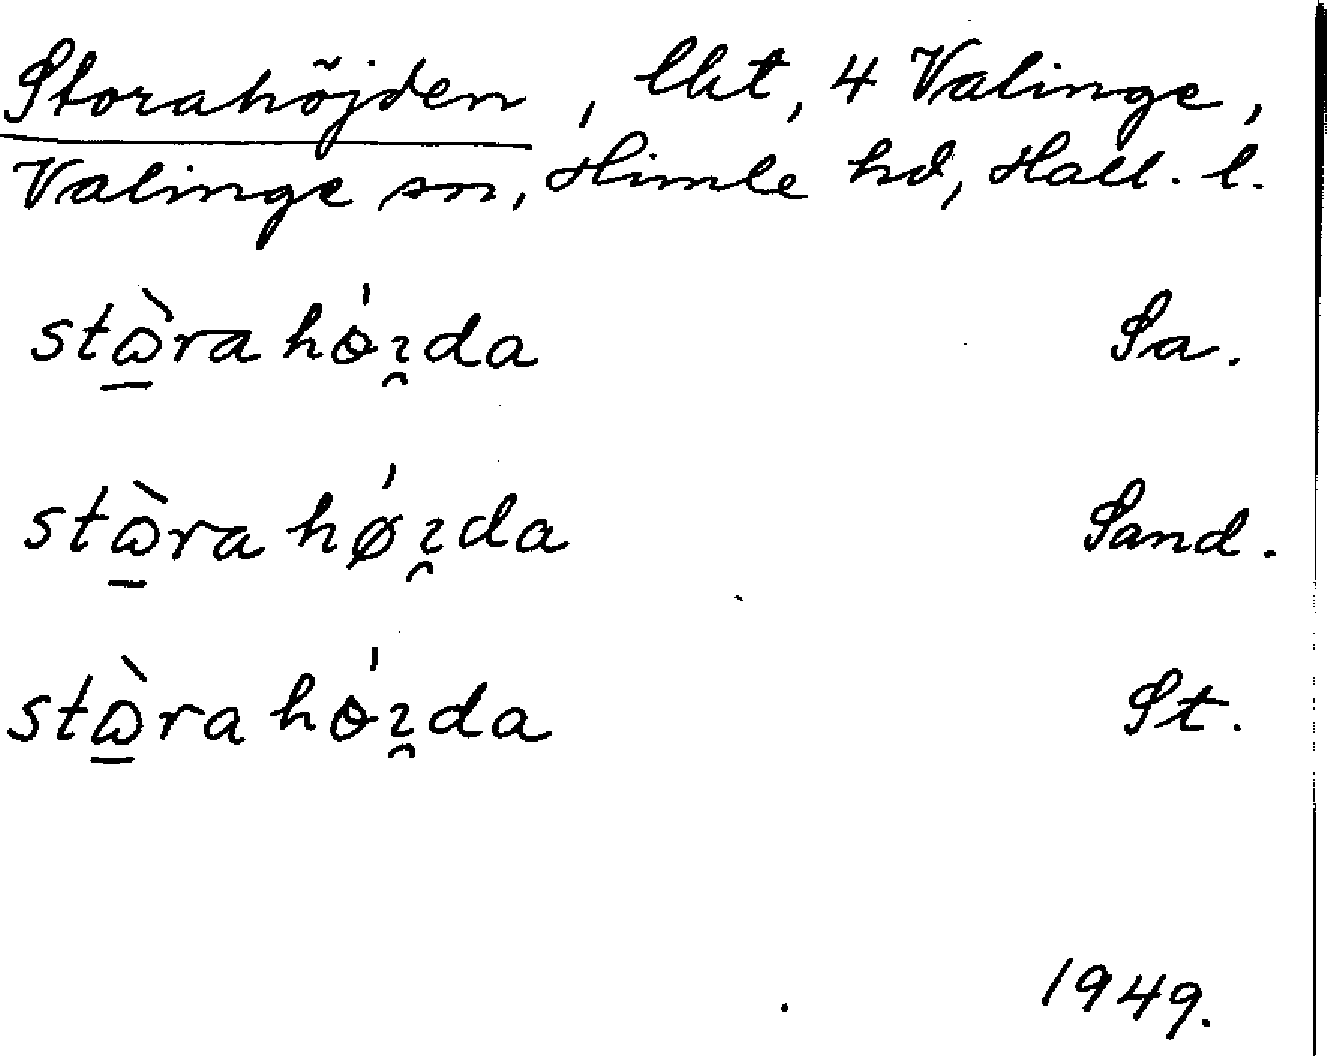 Storahöjden, lht, 4 Valinge,
Valinge sn, Himle hd, Hall. l.
stὼ̲ra hɵ́ı̯da Sa.
stὼ̲ra hǿı̯da Sand.
stὼ̲ra hɵ́ı̯da St.
1949.